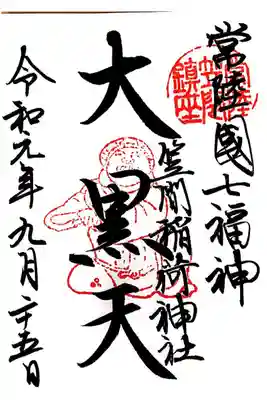 常陸國七福神
笠間稲荷神社
大黒天
令和元年九月二十五日